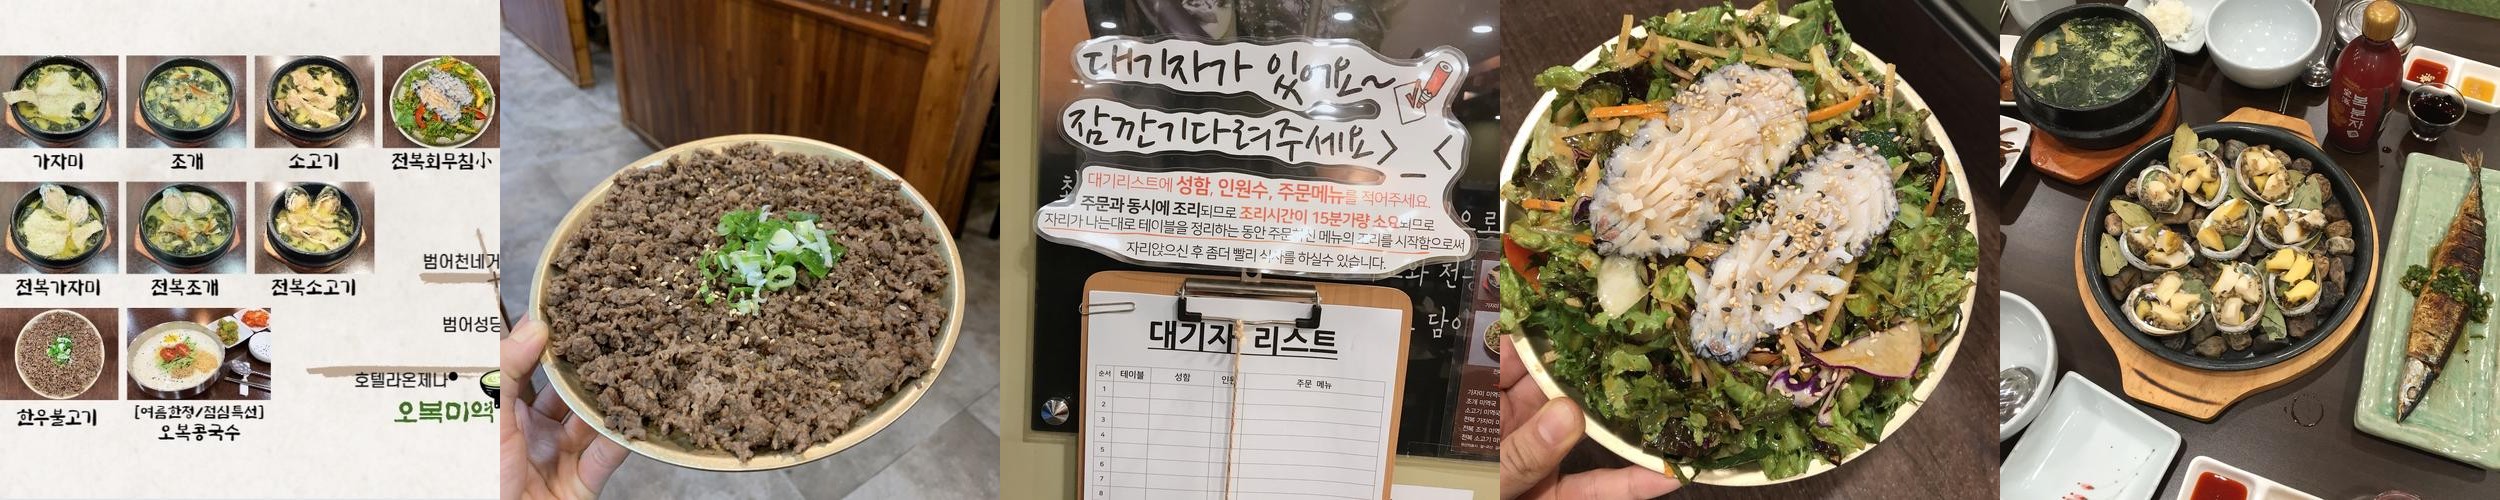 가자미
조개
소고기
전복회무침小
전복가자미
전복조개
전복소고기
범어천네거
범어성당
호텔라온제나
오복미역
한우불고기
[여름한정/점심특선]
오복콩국수
대기자가 있어요~
잠깐기다려주세요> <
대기리스트에 성함, 인원수, 주문메뉴를 적어주세요.
주문과 동시에 조리되므로 조리시간이 15분가량 소요되므로
자리가 나는대로 테이블을 정리하는 동안 주문하신 메뉴의 조리를 시작함으로써
자리앉으신 후 좀더 빨리 식사를 하실수 있습니다.
대기자 리스트
순서 테이블 성함 인원 주문 메뉴
1
2
3
4
5
6
7
8
가자미 미역국
조개 미역국
소고기 미역국
전복 가자미 미역
전복 조개 미역
전복 소고기 미
복분자